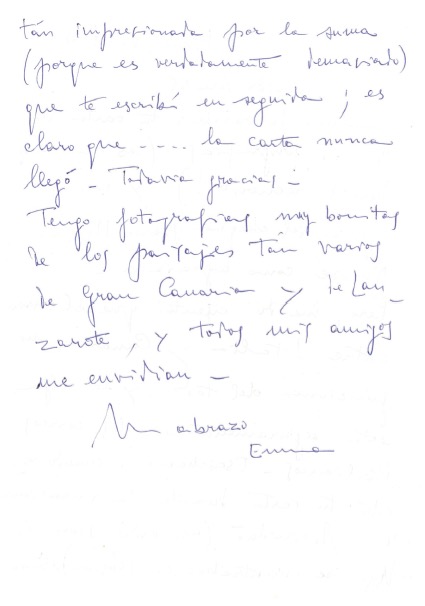 tán impresionada por la suma
(porque es verdadamente demasiado)
que te escribí en seguida; es
claro que ---- la carta nunca
llegó - Todavia gracias -
Tengo fotografias muy bonitas
de los paisajes tán varios
de Gran Canaria y de Lan_
zarote, y todos mis amigos
me envidian -
Un abrazo
Emma